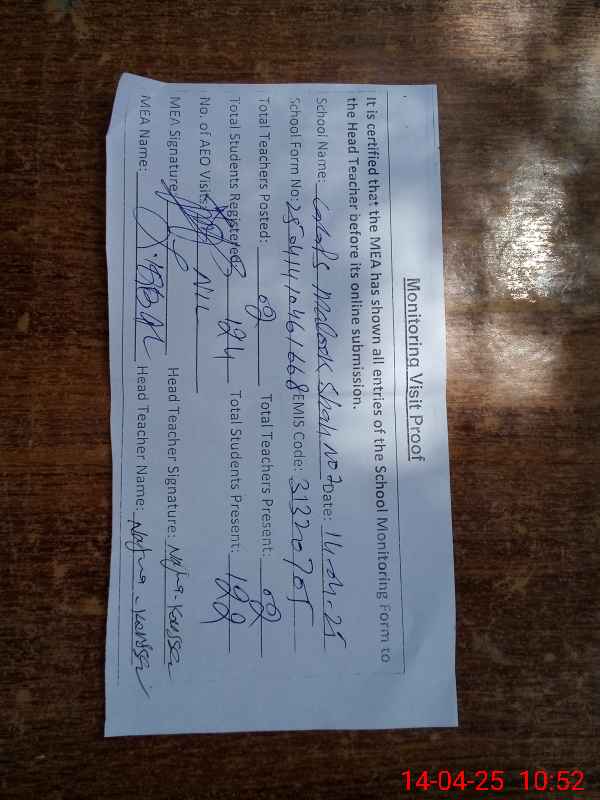 Monitoring Visit Proof
It is certified that the MEA has shown all entries of the School Monitoring Form to
the Head Teacher before its online submission.
School Name: Shah No 2 Date: 14-04-25
School Form No: EMIS Code: 31320705
Total Teachers Posted: 02 Total Teachers Present: 02
Total Students Registered: 124 Total Students Present: 122
No. of AEO Visits: NIL
MEA Signature: Head Teacher Signature: Najma-
MEA Name: Head Teacher Name: Najma-
14-04-25 10:52